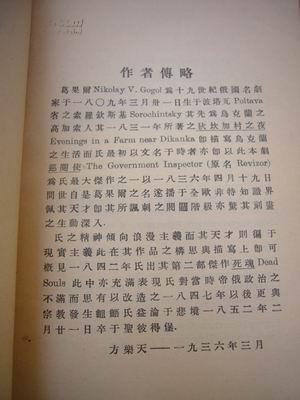 作者傳略
葛果爾 Nikolay V. Gogol 為十九世紀俄國名劇
家于一八〇九年三月卅一日生于波塔瓦 Poltava
省之索羅欽斯基 Sorochintsky 其先為烏克蘭之
高加索人其一八三一年所著之狄坎加村之夜
Evenings in a Farm near Dikanka 卽描寫烏克蘭
之生活而氏最初以文名于時者亦卽以此本劇
巡閱使-The Government Inspector (原名 Revizor)
為氏最大傑作之一以一八三六年四月十九日
問世自是葛果爾之名遂播于全歐非特知識界
佩其天才卽其所諷刺之閥閱階級亦驚其刻畫
之生動深入.
氏之精神傾向浪漫主義而其天才則偏于
現實主義此在其作品之構思與描寫上卽可
概見一八四二年氏出其第二部傑作死魂 Dead
Souls 此中亦充滿表現氏對當時帝俄政治之
不滿而思有以改造之一八四七年以後更與
宗教發生齟齬氏益淪于悲境一八五二年二
月廿一日卒于聖彼得堡.
方樂天——一九三六年三月